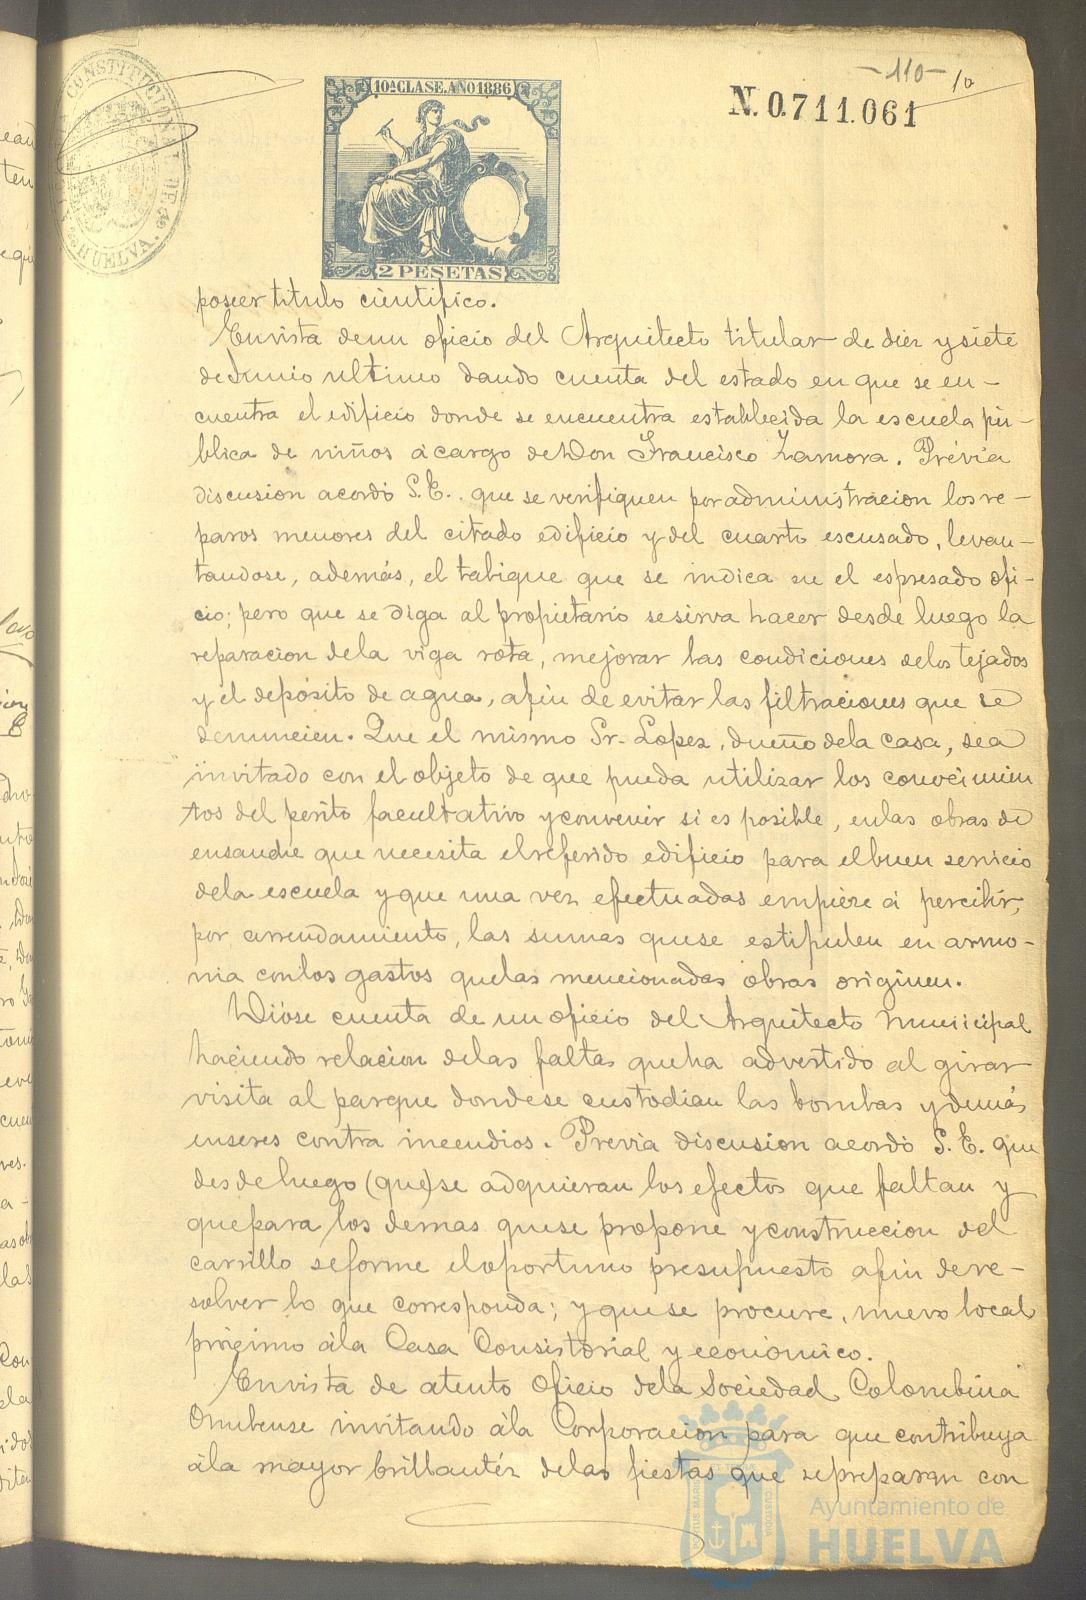 -110-
10
N. 0.711.061
CONSTITUCIONAL DE
HUELVA.
10ª CLASE. AÑO 1886
2 PESETAS
poseer titulo cientifico.
En vista de un oficio del Arquitecto titular de diez y siete
de Junio ultimo dando cuenta del estado en que se en-
cuentra el edificio donde se encuentra establecida la escuela pú-
blica de niños á cargo de Don Francisco Zamora. Prévia
discusion acordó S.E. que se verifiquen por administracion los re-
paros menores del citado edificio y del cuarto escusado, levan-
tandose, además, el tabique que se indica en el espresado ofi-
cio; pero que se diga al propietario se sirva hacer desde luego la
reparacion de la viga rota, mejorar las condiciones de los tejados
y el depósito de agua, afin de evitar las filtraciones que se
denuncien. Que el mismo Sr. Lopez, dueño de la casa, sea
invitado con el objeto de que pueda utilizar los conocimien
tos del périto facultativo y convenir si es posible, en las obras de
ensanche que necesita el referido edificio para el buen servicio
de la escuela y que una vez efectuadas empiece á percibir,
por arrendamiento, las sumas que se estipulen en armo-
nia con los gastos que las mencionadas obras originen.
Dióse cuenta de un oficio del Arquitecto Municipal
haciendo relacion de las faltas que ha advertido al girar
visita al parque donde se custodian las bombas y demás
enseres contra incendios. Prévia discusion acordó S.E. que
desde luego (que) se adquieran los efectos que faltan y
que para los demas que se propone y construccion del
carrillo se forme el oportuno presupuesto afin de re-
solver lo que corresponda; y que se procure, nuevo local
prógimo á la Casa Consistorial y económico.
En vista de atento oficio de la Sociedad Colombina
Onubense invitando á la Corporacion para que contribuya
á la mayor brillantéz de las fiestas que se preparan con
Ayuntamiento de
HUELVA